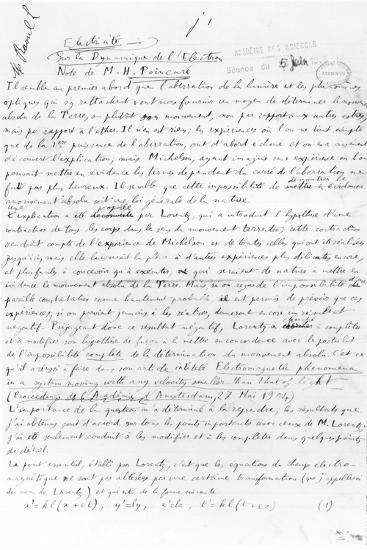 j 1
Electricité —
Sur la Dynamique de l'Electron
Note de M. H. Poincaré
ACADÉMIE DES SCIENCES
Séance du 5 juin
Il semble au premier abord que l'aberration de la lumière et les phénomènes
optiques qui s'y rattachent vont nous fournir un moyen de déterminer le mouvement
absolu de la Terre, ou plutôt son mouvement, non par rapport aux autres astres,
mais par rapport à l'éther. Il n'en est rien; les expériences où l'on ne tient compte
que de la 1ère puissance de l'aberration, ont d'abord échoué et on en a aisément
découvert l'explication; mais Michelson, ayant imaginé une expérience où l'on
pouvait mettre en évidence les termes dépendant du carré de l'aberration, ne
fut pas plus heureux. Il semble que cette impossibilité de
mouvement absolu soit une loi générale de la nature.
Une explication a été proposée par Lorentz, qui a introduit l'hypothèse d'une
contraction de tous les corps dans le sens du mouvement terrestre; cette contraction
rendrait compte de l'expérience de Michelson et de toutes celles qui ont été réalisées
jusqu'ici, mais elle laisserait la place à d'autres expériences plus délicates encore,
et plus faciles à concevoir qu'à exécuter, qui seraient de nature à mettre en
évidence le mouvement absolu de la Terre. Mais si on regarde l'impossibilité d'une
pareille constatation comme hautement probable, il est permis de prévoir que ces
expériences, si on parvient jamais à les réaliser, donneront encore un résultat
négatif. Lorentz a cherché à compléter
et à modifier son hypothèse de façon à la mettre en concordance avec le postulat
de l'impossibilité complète de la détermination du mouvement absolu. C'est ce
qu'il a réussi à faire dans son article intitulé Electromagnetic phenomena
in a system moving with any velocity smaller than that of light
(Proceedings de l'Académie d'Amsterdam, 27 Mai 1904)
L'importance de la question m'a déterminé à la reprendre; les résultats que
j'ai obtenus sont d'accord sur tous les points importants avec ceux de M. Lorentz;
j'ai été seulement conduit à les modifier et à les compléter dans quelques points
de détail.
Le point essentiel, établi par Lorentz, c'est que les équations du champ électro-
magnétique ne sont pas altérées par une certaine transformation (que j'appellerai
du nom de Lorentz) et qui est de la forme suivante
x'=kl(x+εt), y'=ly, z'=lz, t'=kl(t+εx) (1)